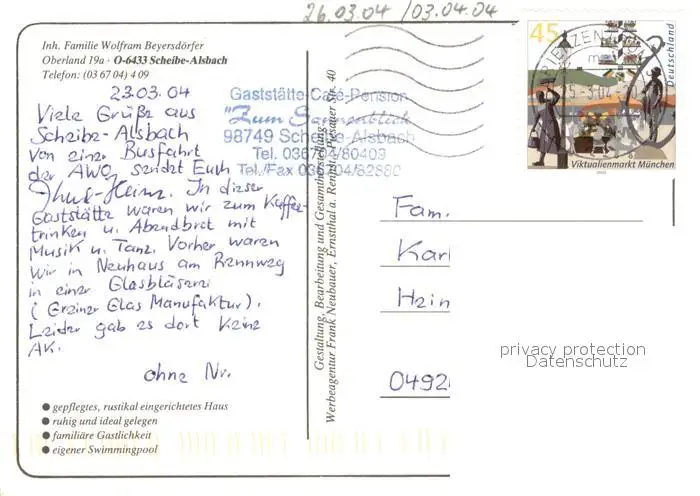 26.03.04 /03.04.04
Inh. Familie Wolfram Beyersdörfer
Oberland 19a · O-6433 Scheibe-Alsbach
Telefon: (03 67 04) 4 09
23.03.04
Viele Grüße aus
Scheibe-Alsbach
Von einer Busfahrt
der AWO sendet Euch
Heinz. In dieser
Gaststätte waren wir zum Kaffee-
trinken u. Abendbrot mit
Musik u. Tanz. Vorher waren
wir in Neuhaus am Rennweg
in einer Glasbläserei
(Greiner Glas Manufaktur).
Leider gab es dort keine
AK.
ohne Nr.
● gepflegtes, rustikal eingerichtetes Haus
● ruhig und ideal gelegen
● familiäre Gastlichkeit
● eigener Swimmingpool
Gaststätte-Café-Pension
"Zum Sonnenblick
98749 Scheibe-Alsbach
Tel. 036704/80409
Tel./Fax 036704/82880
Gestaltung, Bearbeitung und Gesamtherstellung:
Werbeagentur Frank Neubauer, Ernstthal a. Rennsteig, Str. 40
45
Deutschland
Viktualienmarkt München
Fam.
Karl
Hein
0492
privacy protection
Datenschutz